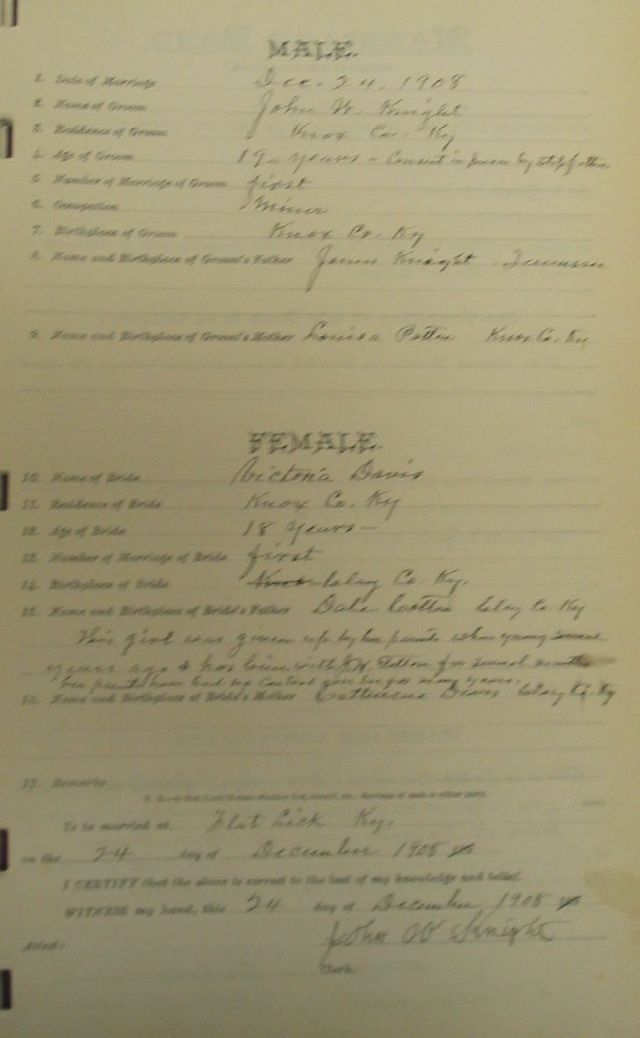 MALE.
1. Date of Marriage Dec. 24. 1908
2. Name of Groom John W. Knight
3. Residence of Groom Knox Co. Ky
4. Age of Groom 19 years - Consent in person by Stepfather
5. Number of Marriage of Groom first
6. Occupation Miner
7. Birthplace of Groom Knox Co. Ky
8. Name and Birthplace of Groom's Father Knight Tennessee
9. Name and Birthplace of Groom's Mother Louisa Knox Co. Ky
FEMALE.
10. Name of Bride Victoria Davis
11. Residence of Bride Knox Co. Ky
12. Age of Bride 18 years —
13. Number of Marriage of Bride first
14. Birthplace of Bride Knox Clay Co. Ky.
15. Name and Birthplace of Bride's Father Clay Co Ky
This girl was given up by her parents when young several
years ago & has been with for several months
her parents have had no control for many years.
16. Name and Birthplace of Bride's Mother Catherine Davis Clay Co. Ky
17. Remarks
To be married at Flat Lick Ky.
on the 24 day of December 1908
I CERTIFY that the above is correct to the best of my knowledge and belief.
WITNESS my hand, this 24 day of December 1908
John W Knight
Attest:
Clerk